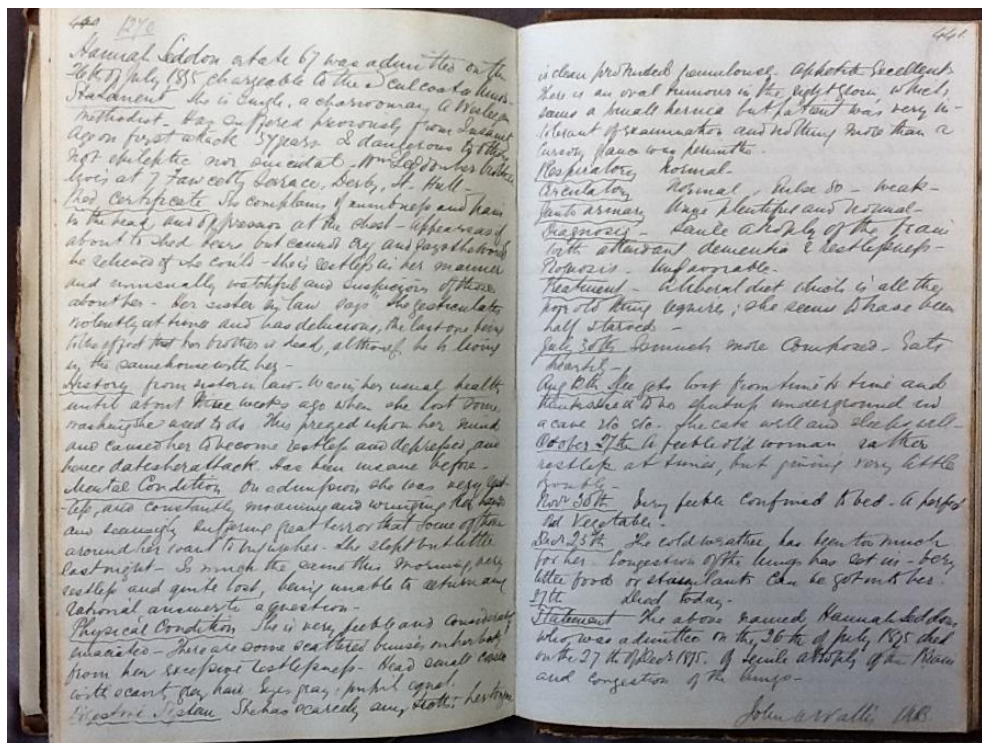 440 1270
Hannah Seddon aetate 67 was admitted on the
26th of July 1875 chargeable to the Sculcoates Union
Statement She is Single, a charwoman, a Wesleyan
Methodist. Has suffered previously from Insanity
Age on first attack 57 years Is dangerous to others
not epileptic nor suicidal. Wm Seddon her brother
lives at 7 Fawcetts Terrace, Derby St. Hull.
Med certificate She complains of numbness and pain
in the head and oppression at the chest - appears as if
about to shed tears but cannot cry and says she would
be relieved if she could - she is restless in her manner
and unusually watchful and suspicious of those
about her - Her sister in law says "she gesticulates
violently at times and has delusions, the last one being
to the effect that her brother is dead, although he is living
in the same house with her -
History from sister in law. Was in her usual health
until about three weeks ago when she lost some
washing she used to do This preyed upon her mind
and caused her to become restless and depressed, and
hence dates her attack. Has been insane before -
Mental Condition On admission she was very rest-
-less, and constantly moaning and wringing her hands
and seemingly suffering great terror that some of those
around her want to injure her - She slept but little
last night - Is much the same this morning, very
restless and quite lost, being unable to return any
rational answer to a question -
Physical Condition She is very feeble and considerably
emaciated - There are some scattered bruises on her body
from her excessive restlessness - Head small covered
with scant grey hair Eyes gray; pupils equal.
Digestive System She has scarcely any teeth; her tongue
441.
is clean protruded tremulously. Appetite excellent
There is an oral tumour in the right groin which
seems a small hernia but patient was very in-
tolerant of examination and nothing more than a
cursory glance was permitted.
Respiratory Normal -
Circulatory Normal, Pulse 80 - weak -
Genito urinary Urine plentiful and normal -
Diagnosis - Senile atrophy of the brain
with attendant dementia & restlessness -
Prognosis. Unfavorable.
Treatment - A liberal diet which is all the
poor old thing requires; she seems to have been
half starved -
July 30th Is much more composed - Eats
heartily -
Aug 12th She gets lost from time to time and
thinks she is to be shut up underground in
a cave etc etc. She eats well and sleeps well -
October 27th A feeble old woman rather
restless at times, but giving very little
trouble -
Novr 30th Very feeble confined to bed - A perfect
old vegetable.
Decr 25th The cold weather has been too much
for her. Congestion of the lungs has set in - very
little food or stimulants can be got into her.
27th Died today -
Statement The above named, Hannah Seddon
who was admitted on the 26th of July 1875 died
on the 27th of Decr 1875. Of senile atrophy of the Brain
and congestion of the lungs -
John A Wallis MB.